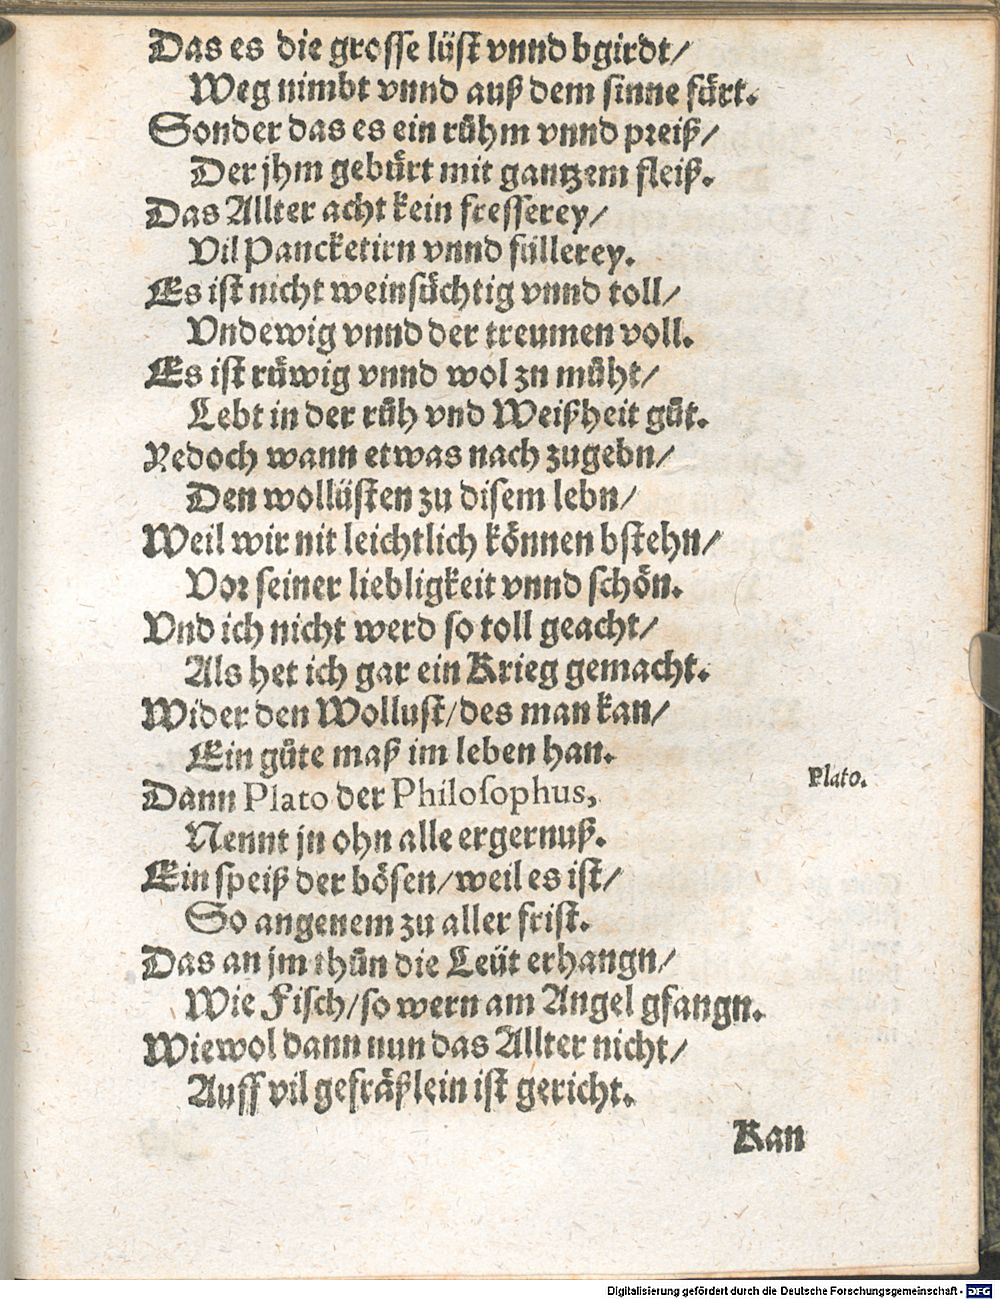 Das es die grosse lüst vnnd bgirdt/
Weg nimbt vnnd auß dem sinne fürt.
Sonder das es ein růhm vnnd preiß/
Der jhm gebürt mit gantzem fleiß.
Das Allter acht kein fresserey/
Vil Pancketirn vnnd füllerey.
Es ist nicht weinsüchtig vnnd toll/
Vndewig vnnd der treumen voll.
Es ist rüwig vnnd wol zu můht/
Lebt in der růh vnd Weißheit gůt.
Yedoch wann etwas nach zugebn/
Den wollüsten zu disem lebn/
Weil wir nit leichtlich können bstehn/
Vor seiner liebligkeit vnnd schön.
Vnd ich nicht werd so toll geacht/
Als het ich gar ein Krieg gemacht.
Wider den Wollust/des man kan/
Ein gůte maß im leben han.
Dann Plato der Philosophus,
Plato.
Nennt jn ohn alle ergernuß.
Ein speiß der bösen/weil es ist/
So angenem zu aller frist.
Das an jm thůn die Leüt erhangn/
Wie Fisch/so wern am Angel gfangn.
Wiewol dann nun das Allter nicht/
Auff vil gefräßlein ist gericht.
Kan
Digitalisierung gefördert durch die Deutsche Forschungsgemeinschaft - DFG